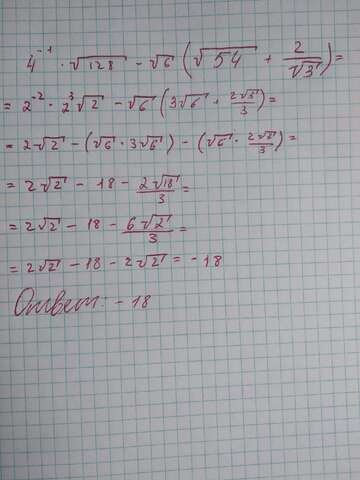 4⁻¹ · √128 - √6 (√54 + 2/√3) =
= 2⁻² · 2³√2 - √6 (3√6 + 2√3/3) =
= 2√2 - (√6 · 3√6) - (√6 · 2√3/3) =
= 2√2 - 18 - 2√18/3 =
= 2√2 - 18 - 6√2/3 =
= 2√2 - 18 - 2√2 = - 18
Ответ: - 18